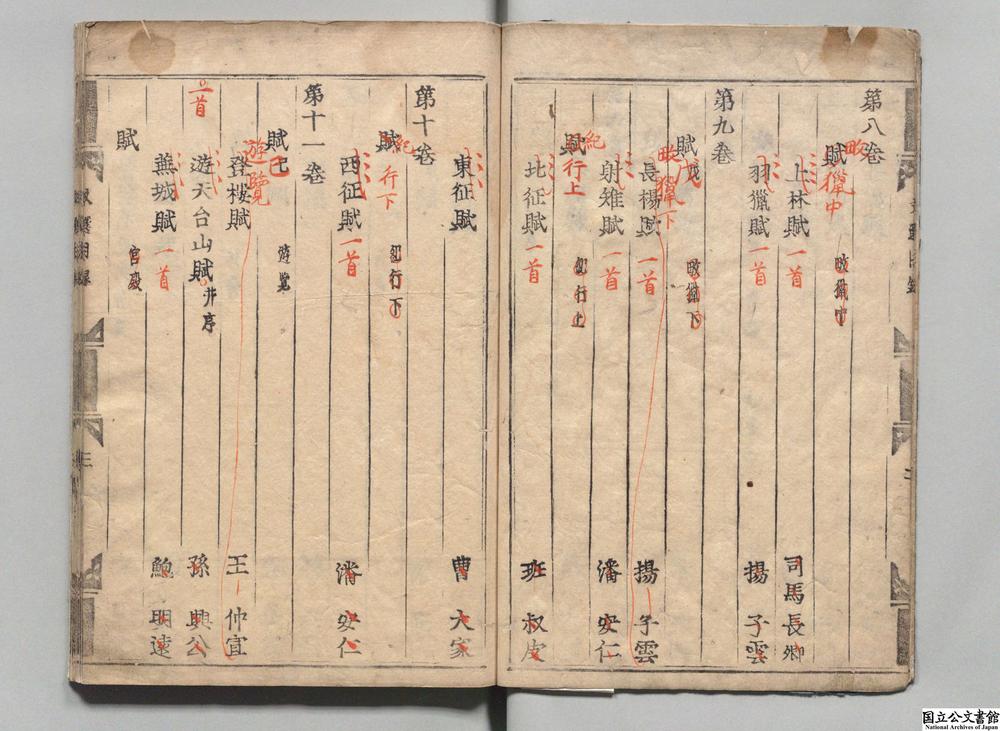 第八卷
賦 畋獵中
畋獵中
上林賦 一首 司馬長卿
羽獵賦 一首 揚子雲
第九卷
賦戊 畋獵下
畋獵下
長楊賦 一首 揚子雲
射雉賦 一首 潘安仁
賦 紀行上
紀行上
北征賦 一首 班叔皮
東征賦 曹大家
第十卷
賦 紀行下
紀行下
西征賦 一首 潘安仁
第十一卷
賦己 遊覽
遊覽
登樓賦 王仲宣
一首
遊天台山賦 并序 孫興公
蕪城賦 一首 鮑明遠
賦
宮殿
三
国立公文書館
National Archives of Japan